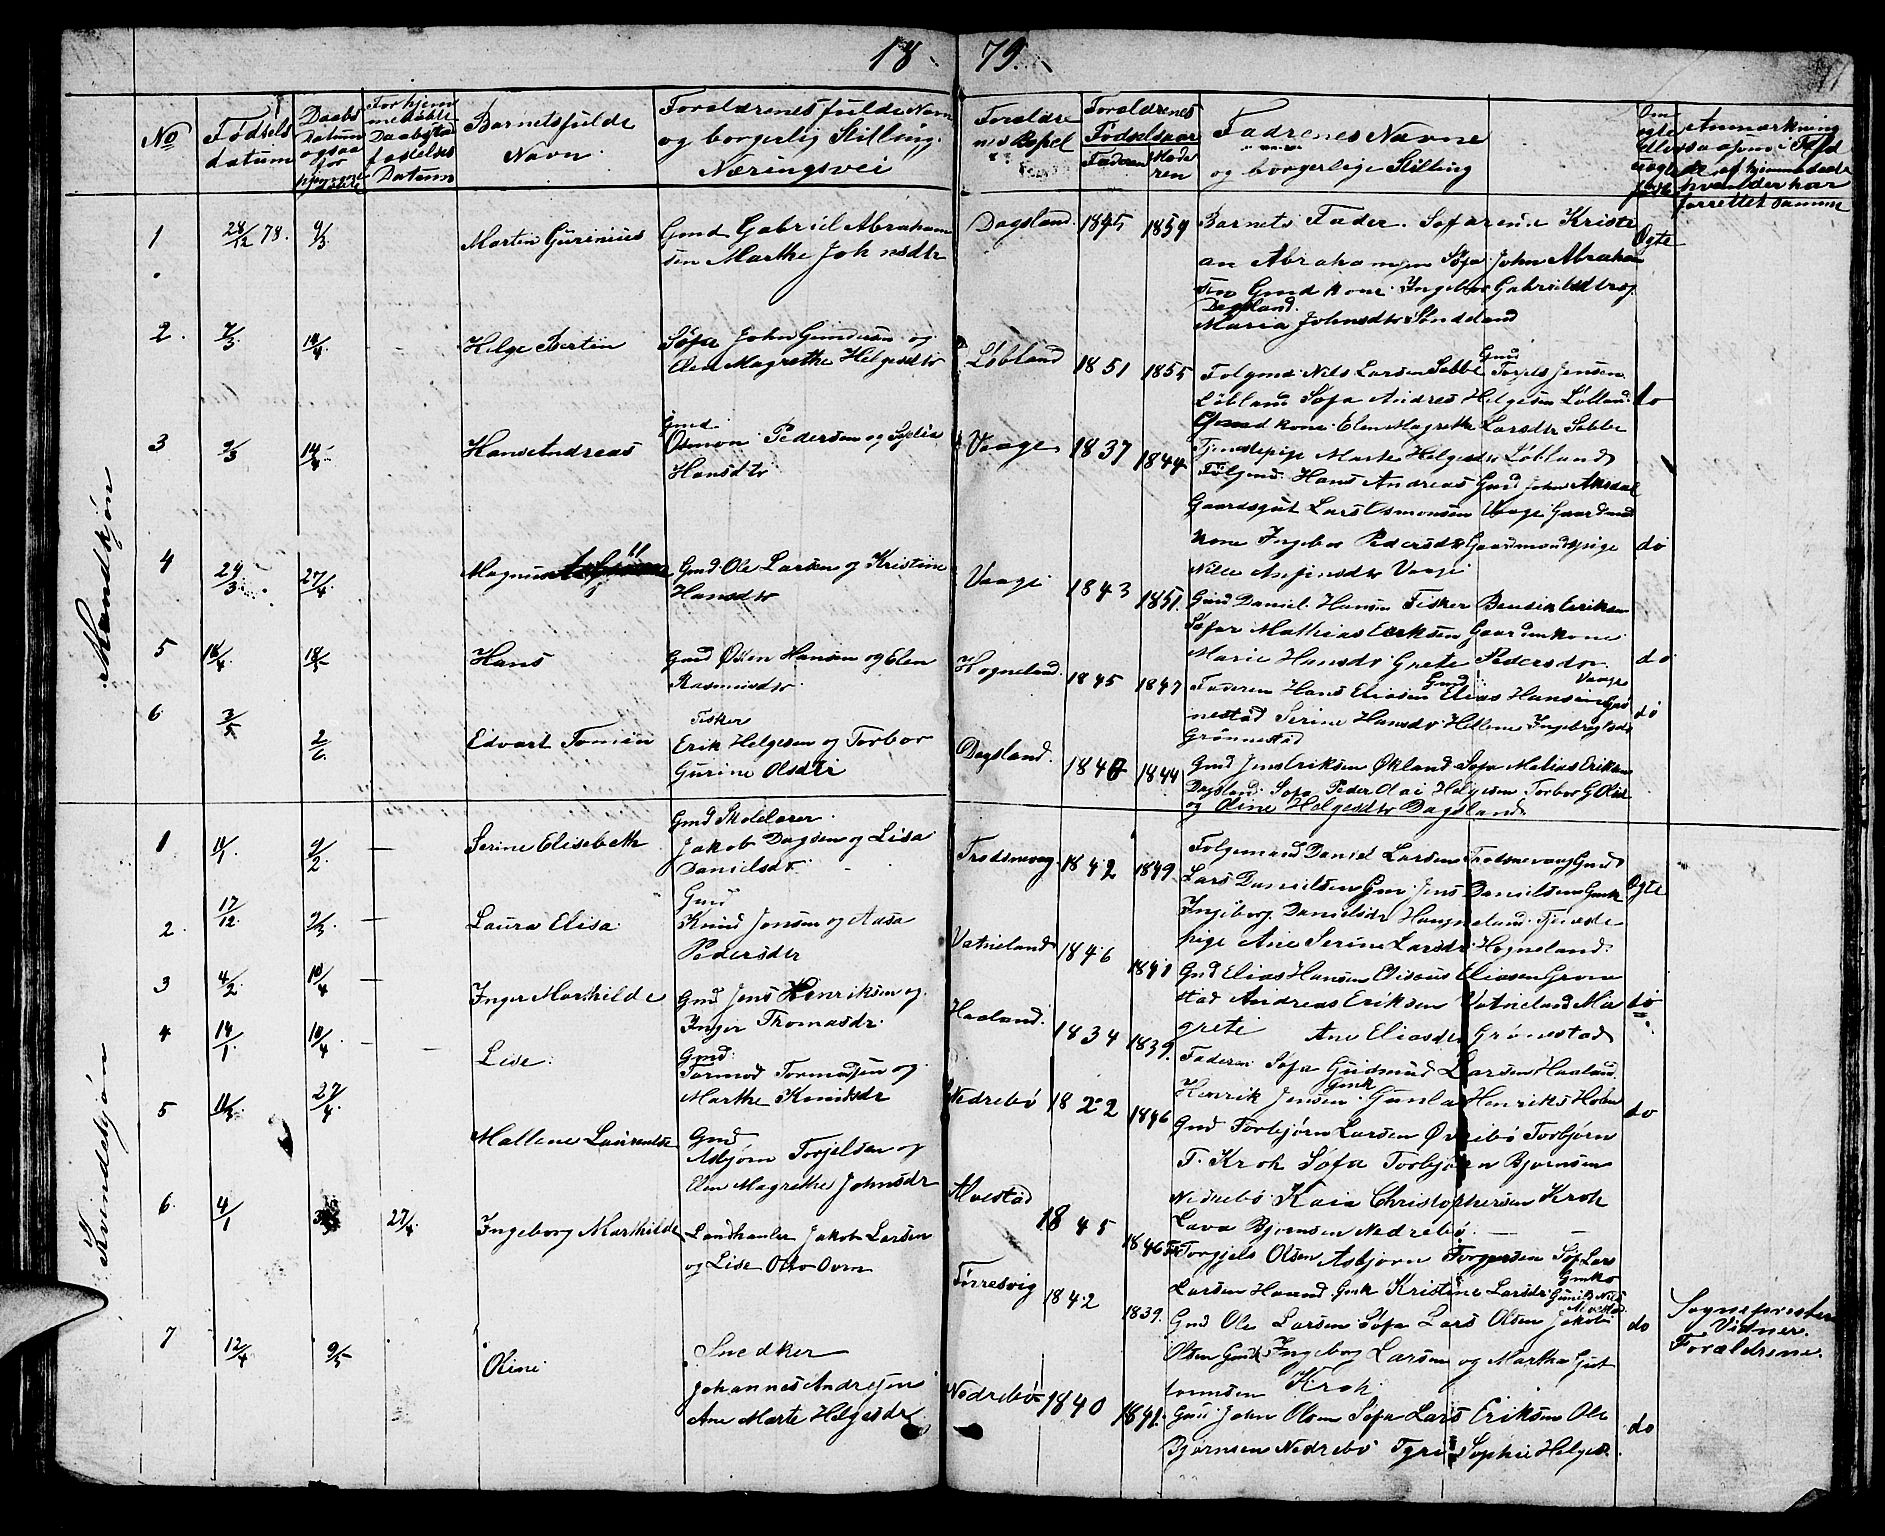 18 79.
No
Fødsels datum
Daabs Datum ogsaa for hjemmedøbte
For hjemmedøbte Daabstadfæstelses Datum
Barnets fulde Navn
Forældrenes fulde Navn og borgerlig Stilling. Næringsvei
Forældrenes Bopel
Forældrenes Fødselsaar
Faderen
Moderen
Fadrenes Navne og borgerlige Stilling
Om ægte eller uægte født
Anmærkning saasom i Tilfælde af hjemmedøbte hvem der har forrettet samme
Mandkjøn
1
28/12 78.
9/3
Martin Gurinius
Gmd Gabriel Abraham
sen Marthe Johnsdtr
Dagsland
1845
1859
Barnets Fader. Søfarende Kristi
an Abrahamsen Søfa John Abraham
sen Gmd kone Ingebor Gabrielsdtr og
Dagsland.
Maria Johnsdtr Søndeland
Ægte
2.
7/3
14/4
Helge Bertin
Søfa John Gundersen og
Elen Magrethe Helgesdtr
Løbland
1851
1855
Folgmd Nils Larsen Sebbe Gmd Torjels Jensen
Løbland Søfa Andres Helgesen Løbland
Gmd kone Elen Magrethe Larsdtr Sebbe
Tjenestepige Marte Helgesdtr Løbland
do
3
9/3
14/4
Hans Andreas
Gmd
Osmon Pedersen og Sylia
Hansdtr
Vaage
1837
1844
Følgmd. Hans Andreas Gmd John Aksdal
Gaardsgut Lars Osmonsen Vaage Gaardmd
kone Ingebor Pedersdtr Gaardmandspige
Nille Anfinsdtr Vaage
do
4
24/3
27/4
Magnus
Gmd Ole Larsen og Kristine
Hansdtr
Vaage
1843
1851
Gmd Daniel Hansen Fisker Bendik Eriksen
Søfar Mathias Eriksen Gaardmkone
Marie Hansdr Grete Pedersdtr
Vaage
do
5
16/4
18/5
Hans
Gmd Østen Hansen og Elen
Rasmusdtr
Hogneland
1845
1847
Faderen Hans Eliasen Gmd Elias Hansen Grø
nestad Serine Hansdr Hellene Ingebrigtsdr
Grønnestad
do
6
3/5
2/6
Edvart Tomin
Fisker
Erik Helgesen og Torbor
Gurine Olsdtr
Dagsland.
1840
1844
Gmd Jens Eriksen Økland Søfa Matias Eriksen
Dagsland. Søfa Peder Olai Helgesen Torbor G Olsdr
og Oline Helgesdtr Dagsland
Kvindekjøn
1
10/1
9/2
Serine Elisebeth
Gmd Skolelærer
Jakob Dagsen og Lisa
Danielsdtr
Trodsnevaag
1842
1849
Følgemand Daniel Larsen Trodsnevaag Gmd
Lars Danielsen Gm Jens Danielsen Gmk
Ingeborg Danielsdr Haugneland Tjeneste
pige Ane Serine Larsdr Hogneland.
Ægte
2.
17/12
9/3
Laura Elisa
Gmd
Knud Jensen og Aasa
Pedersdtr
Vatneland
1846
Gmd Elias Hansen Eliseus Eliasen Grøne
stad Andreas Eriksen Vatneland Ma
grete Ane Eliasdr Grønestad
do
3
4/2
10/4
Inger Mathilde
Gmd Jens Henriksen og
Inger Tromasdr.
Haaland.
1834
1839.
Faderen Søfa Gudmud Larsen Haaland
Henrik Jensen Gmk Gunla Henriks Holm
4
14/1
10/4
Lise
Gmd
Tormod Tormodsen og
Marthe Knudsdr
Nedrebø
1822
1846
Gmd Torbjørn Larsen Øvrebø Torbjørn
T. Kroh Søfa Torbjørn Bjørnsen
Nedrebø Kaia Christophersen Kroh
Lava Bjørnsen Nedrebø.
do
5
11/3
27/4
Mallene Laurentse
Gmd
Asbjørn Torjelsen og
Elen Magrethe Johnsdr
Alvestad
1845
1846
Torgjels Olsen Asbjørn Torgersen Søf Lars
Larsen Gmk Kristine Larsdr Gmko
Alvestad
6.
4/1
27/4
Ingeborg Mathilde
Landhanler Jakob Larsen
og Lise Otto Ovm
Førresvig
1842
1839.
Gmd Ole Larsen Søfa Lars Olsen Jakob
Olsen Gmk Ingeborg Larsen og Martha Gut
tormsen Kroh
do
Sognepresten
Vidner.
Forældrene.
7
12/4
9/5
Oline
Snedker
Johannes Andresen
Ane Marte Helgesdr
Nedrebø
1840
1841
Gmd John Olsen Søfa Lars Eriksen Ole
Bjørnsen Nedrebø Tyri Sophie Helges
do